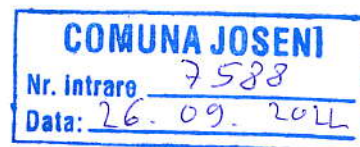 COMUNA JOSENI
Nr. intrare 7588
Data: 26. 09.